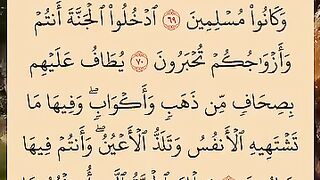 وَكَانُوا۟ مُسْلِمِينَ ٦٩ ٱدْخُلُوا۟ ٱلْجَنَّةَ أَنتُمْ
وَأَزْوَٰجُكُمْ تُحْبَرُونَ ٧٠ يُطَافُ عَلَيْهِم
بِصِحَافٍ مِّن ذَهَبٍ وَأَكْوَابٍ ۖ وَفِيهَا مَا
تَشْتَهِيهِ ٱلْأَنفُسُ وَتَلَذُّ ٱلْأَعْيُنُ ۖ وَأَنتُمْ فِيهَا